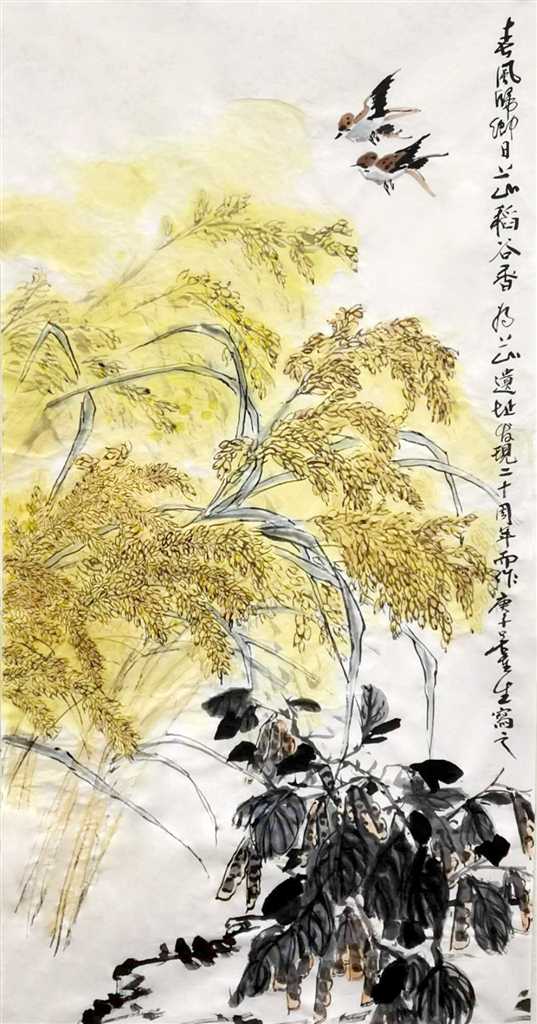 春風歸鄉日上山稻谷香 为上山遺址發現二十周年而作 庚子生寫之